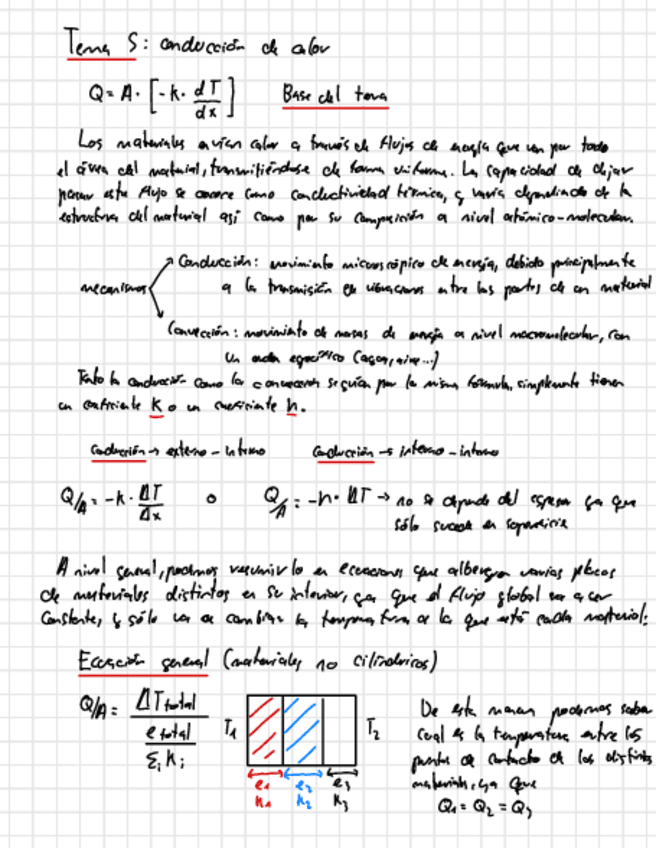 Tema 5: conducción de calor
Q = A · [-k · dT/dx] Base del tema
Los materiales envían calor a través de flujos de energía que van por todo
el área del material, transmitiéndose de forma uniforme. La capacidad de dejar
pasar este flujo se conoce como conductividad térmica, y varía dependiendo de la
estructura del material así como por su composición a nivel atómico-molecular.
Conducción: movimiento microscópico de energía, debido principalmente
mecanismos a la transmisión de vibraciones entre las partes de un material
Convección: movimiento de masas de energía a nivel macromolecular, con
un medio específico (agua, aire...)
Tanto la conducción como la convección se guían por la misma fórmula, simplemente tienen
un coeficiente k o un coeficiente h.
Conducción → externo - interno Conducción → interno - interno
Q/A = -k · ΔT/Δx o Q/A = -h · ΔT → no se depende del espesor ya que
sólo sucede en superficie
A nivel general, podemos resumirlo en ecuaciones que alberguen varias placas
de materiales distintos en su interior, ya que el flujo global va a ser
constante, y sólo va a cambiar la temperatura a la que está cada material:
Ecuación general (materiales no cilíndricos)
Q/A = ΔT total / (e total / Σi ki)
T1 T2
e1 e2 e3
k1 k2 k3
De esta manera podemos saber
cual es la temperatura entre los
puntos de contacto de los distintos
materiales, ya que
Q1 = Q2 = Q3